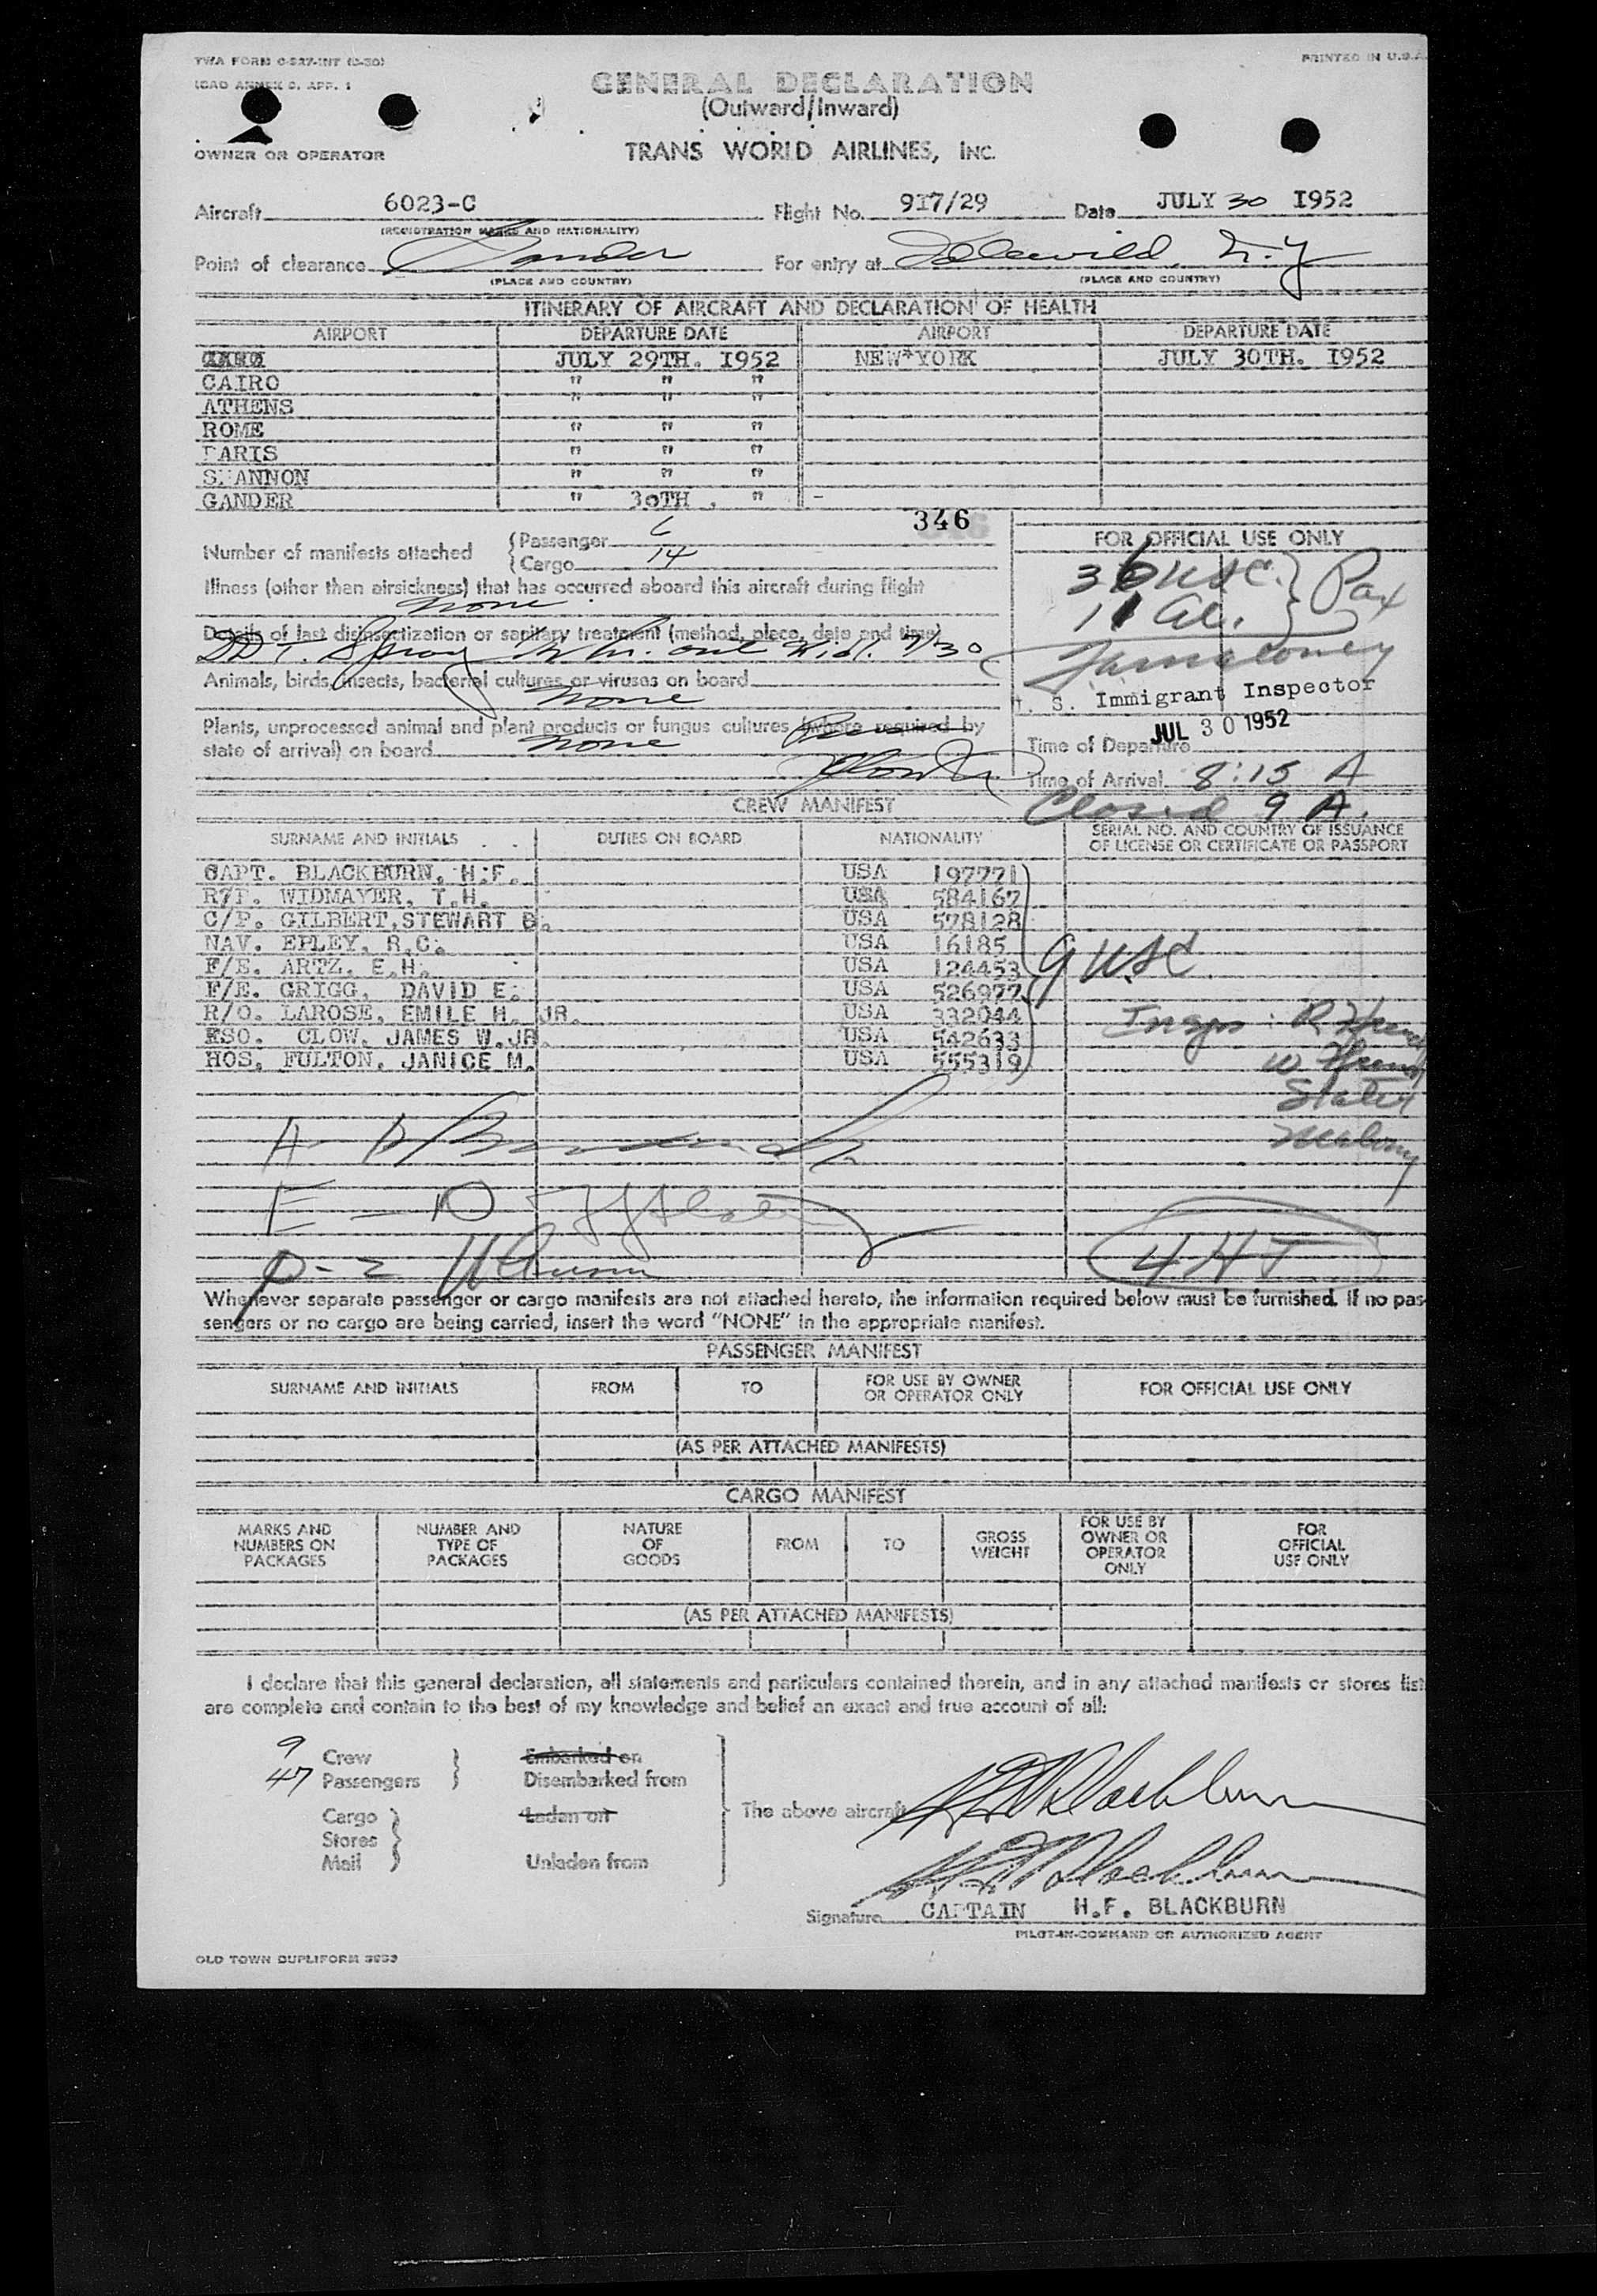 TWA FORM C-527-INT (3-50)
PRINTED IN U.S.A.
ICAO ANNEX 9, APP. 1
GENERAL DECLARATION
(Outward/Inward)
OWNER OR OPERATOR
TRANS WORLD AIRLINES, INC.
Aircraft 6023-C Flight No. 917/29 Date JULY 30 1952
(REGISTRATION MARKS AND NATIONALITY)
Point of clearance Gander For entry at Idlewild, N.Y
(PLACE AND COUNTRY) (PLACE AND COUNTRY)
ITINERARY OF AIRCRAFT AND DECLARATION OF HEALTH
AIRPORT DEPARTURE DATE AIRPORT DEPARTURE DATE
JULY 29TH. 1952 NEW*YORK JULY 30TH. 1952
CAIRO " " "
ATHENS " " "
ROME " " "
PARIS " " "
SHANNON " " "
GANDER " 30TH . " -
346
Number of manifests attached
Passenger 6
Cargo 14
FOR OFFICIAL USE ONLY
36 USC. } Pax
11 Al.
Illness (other than airsickness) that has occurred aboard this aircraft during flight
none
Details of last disinsectization or sanitary treatment (method, place, date and time)
DDT. Spray ½ hr. out Idl. 7/30
Animals, birds, insects, bacterial cultures or viruses on board
none
U. S. Immigrant Inspector
JUL 30 1952
Plants, unprocessed animal and plant products or fungus cultures (where required by
state of arrival) on board none
Time of Departure
Time of Arrival 8:15 A
Closed 9 A.
CREW MANIFEST
SURNAME AND INITIALS DUTIES ON BOARD NATIONALITY SERIAL NO. AND COUNTRY OF ISSUANCE
OF LICENSE OR CERTIFICATE OR PASSPORT
CAPT. BLACKBURN, H.F. USA 197771
R/P. WIDMAYER, T.H. USA 584167
C/P. GILBERT,STEWART B. USA 578128
NAV. EPLEY, R.C. USA 16185
F/E. ARTZ, E.H. USA 124453
9 USC
F/E. GRIGG, DAVID E. USA 526977
R/O. LAROSE, EMILE H. JR. USA 332044
ESO. CLOW, JAMES W.JR. USA 542633
HOS. FULTON, JANICE M. USA 555319
4 HT
Whenever separate passenger or cargo manifests are not attached hereto, the information required below must be furnished. If no pas-
sengers or no cargo are being carried, insert the word "NONE" in the appropriate manifest.
PASSENGER MANIFEST
SURNAME AND INITIALS FROM TO FOR USE BY OWNER
OR OPERATOR ONLY FOR OFFICIAL USE ONLY
(AS PER ATTACHED MANIFESTS)
CARGO MANIFEST
MARKS AND
NUMBERS ON
PACKAGES
NUMBER AND
TYPE OF
PACKAGES
NATURE
OF
GOODS
FROM
TO
GROSS
WEIGHT
FOR USE BY
OWNER OR
OPERATOR
ONLY
FOR
OFFICIAL
USE ONLY
(AS PER ATTACHED MANIFESTS)
I declare that this general declaration, all statements and particulars contained therein, and in any attached manifests or stores list
are complete and contain to the best of my knowledge and belief an exact and true account of all:
9 Crew Embarked on
47 Passengers Disembarked from
Cargo Laden on
The above aircraft HF Blackburn
Stores
Mail Unladen from
HF Blackburn
Signature CAPTAIN H.F. BLACKBURN
PILOT-IN-COMMAND OR AUTHORIZED AGENT
OLD TOWN DUPLIFORM 3853